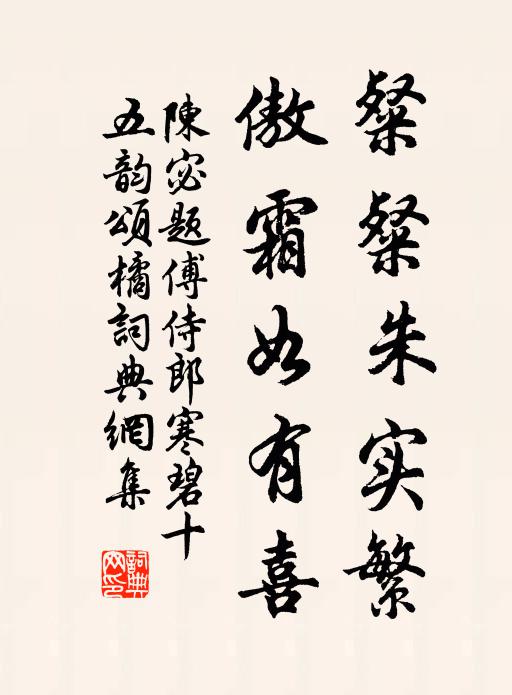 粲粲朱实繁
傲霜如有喜
陳宓题傅侍郎寒碧十
五韵頌橘詞典網集
詞典
网印